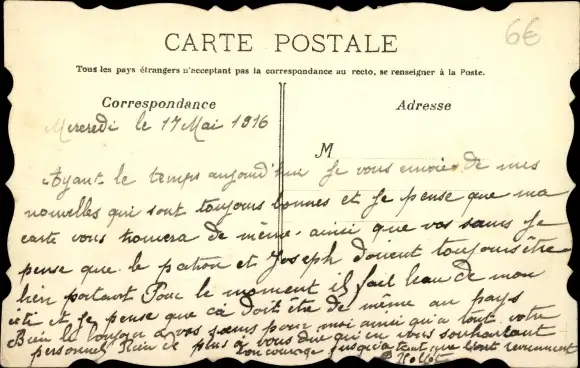 6€
CARTE POSTALE
Tous les pays étrangers n'acceptant pas la correspondance au recto, se renseigner à la Poste.
Correspondance
Adresse
Mercredi le 17 Mai 1916
M
Ayant le temps aujourd'hui je vous envoie de mes
nouvelles qui sont toujours bonnes et je pense que ma
carte vous trouvera de même ainsi que vos sœurs je
pense que le patron et Joseph doivent toujours être
bien portant Pour le moment il fait beau de mon
côté et je pense que ça doit être de même au pays
Bien le bonjour à vos sœurs pour moi ainsi qu'à tout votre
personnel Rien de plus à vous dire qu'en vous souhaitant
bon courage jusqu'à tant que tout reviennent